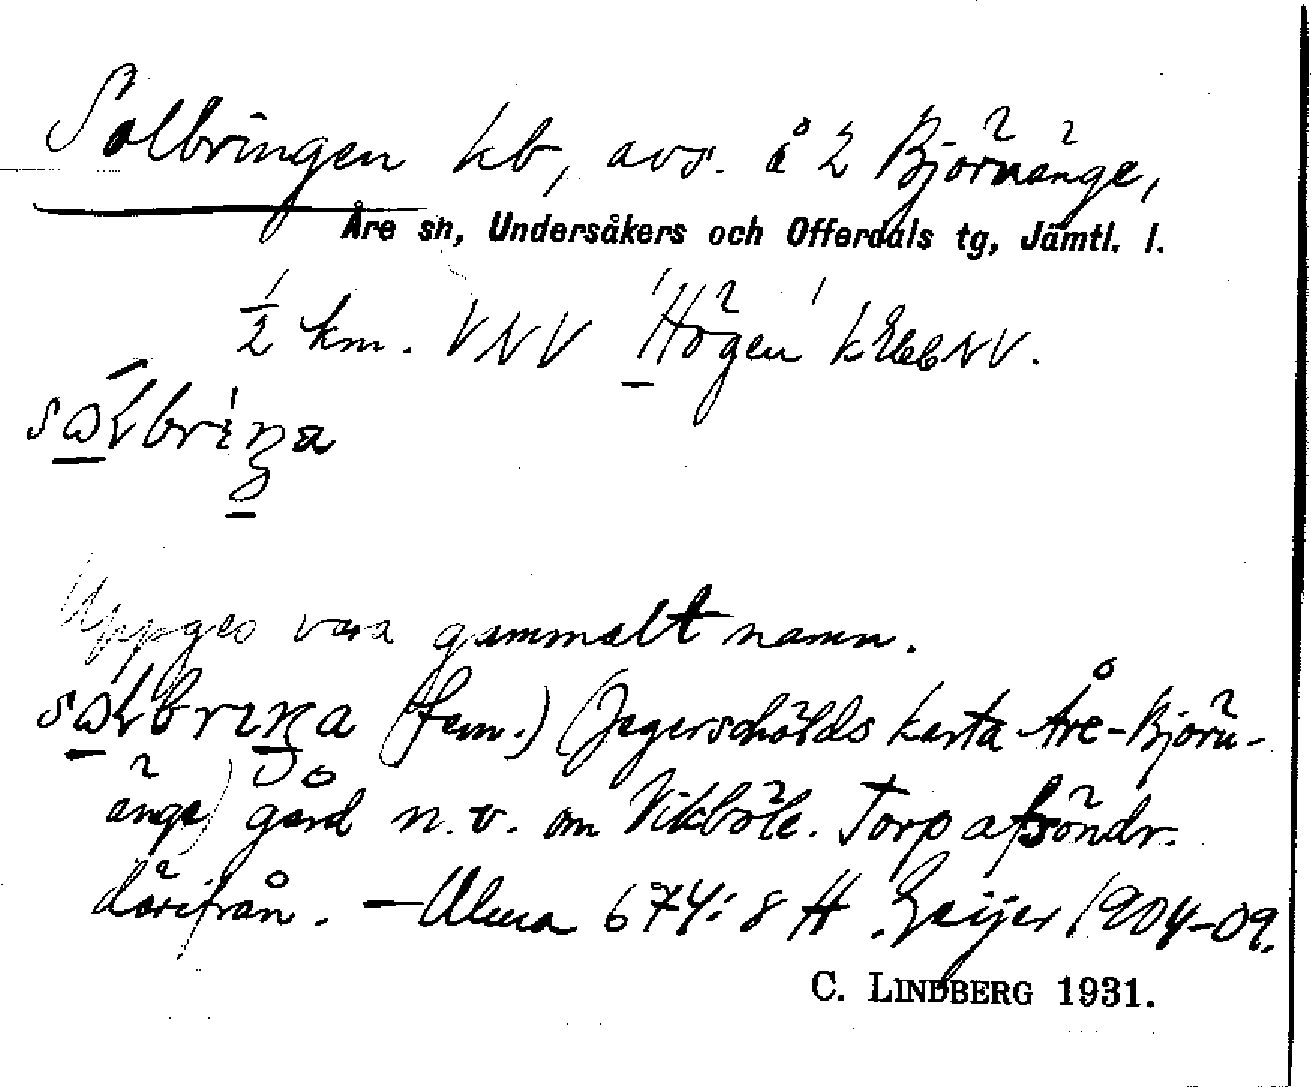 Solbringen kb, avs. å 2 Björnänge,
Åre sn, Undersåkers och Offerdals tg, Jämtl. l.
1/2 km. VNV Högen
sɷlbriŋa
Uppges vara gammalt namn.
sɷlbriŋa (fem.) (Jegerschölds karta Åre-Björn-
änge) gård n.v. om Vikböle. Torp afsöndr.
därifrån. – Ulma 674:8 H. Geijer 1904-09.
C. LINDBERG 1931.